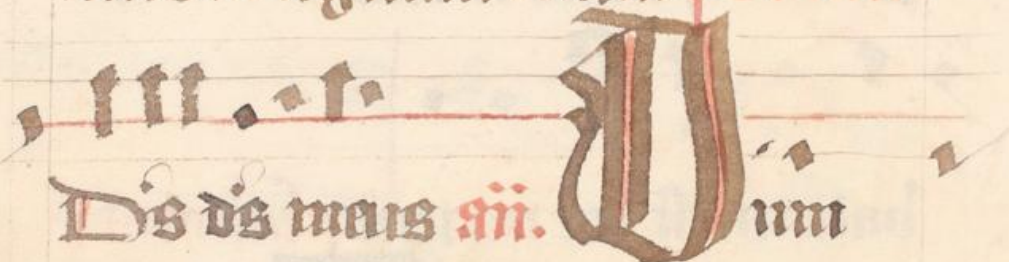 Ds ds meus an. Dum